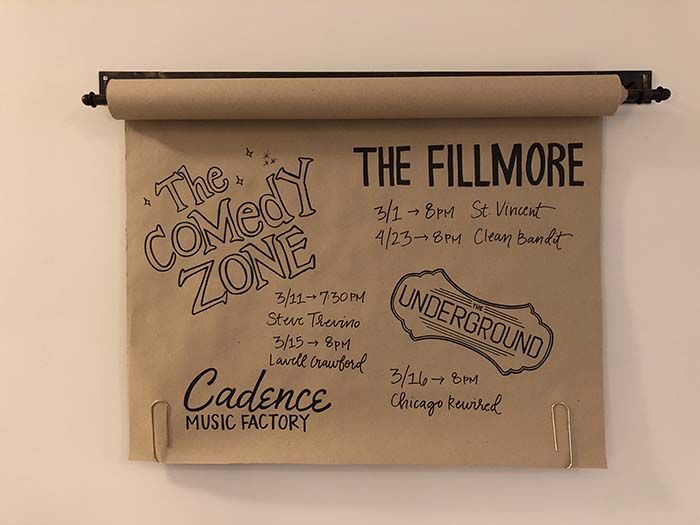 The
COMedY
ZONE
3/11→7:30PM
Steve Trevino
3/15→8PM
Lavell Crawford
Cadence
MUSIC FACTORY
THE FILLMORE
3/1→8PM St. Vincent
4/23→8PM Clean Bandit
THE
UNDERGROUND
3/16→8PM
Chicago Rewired